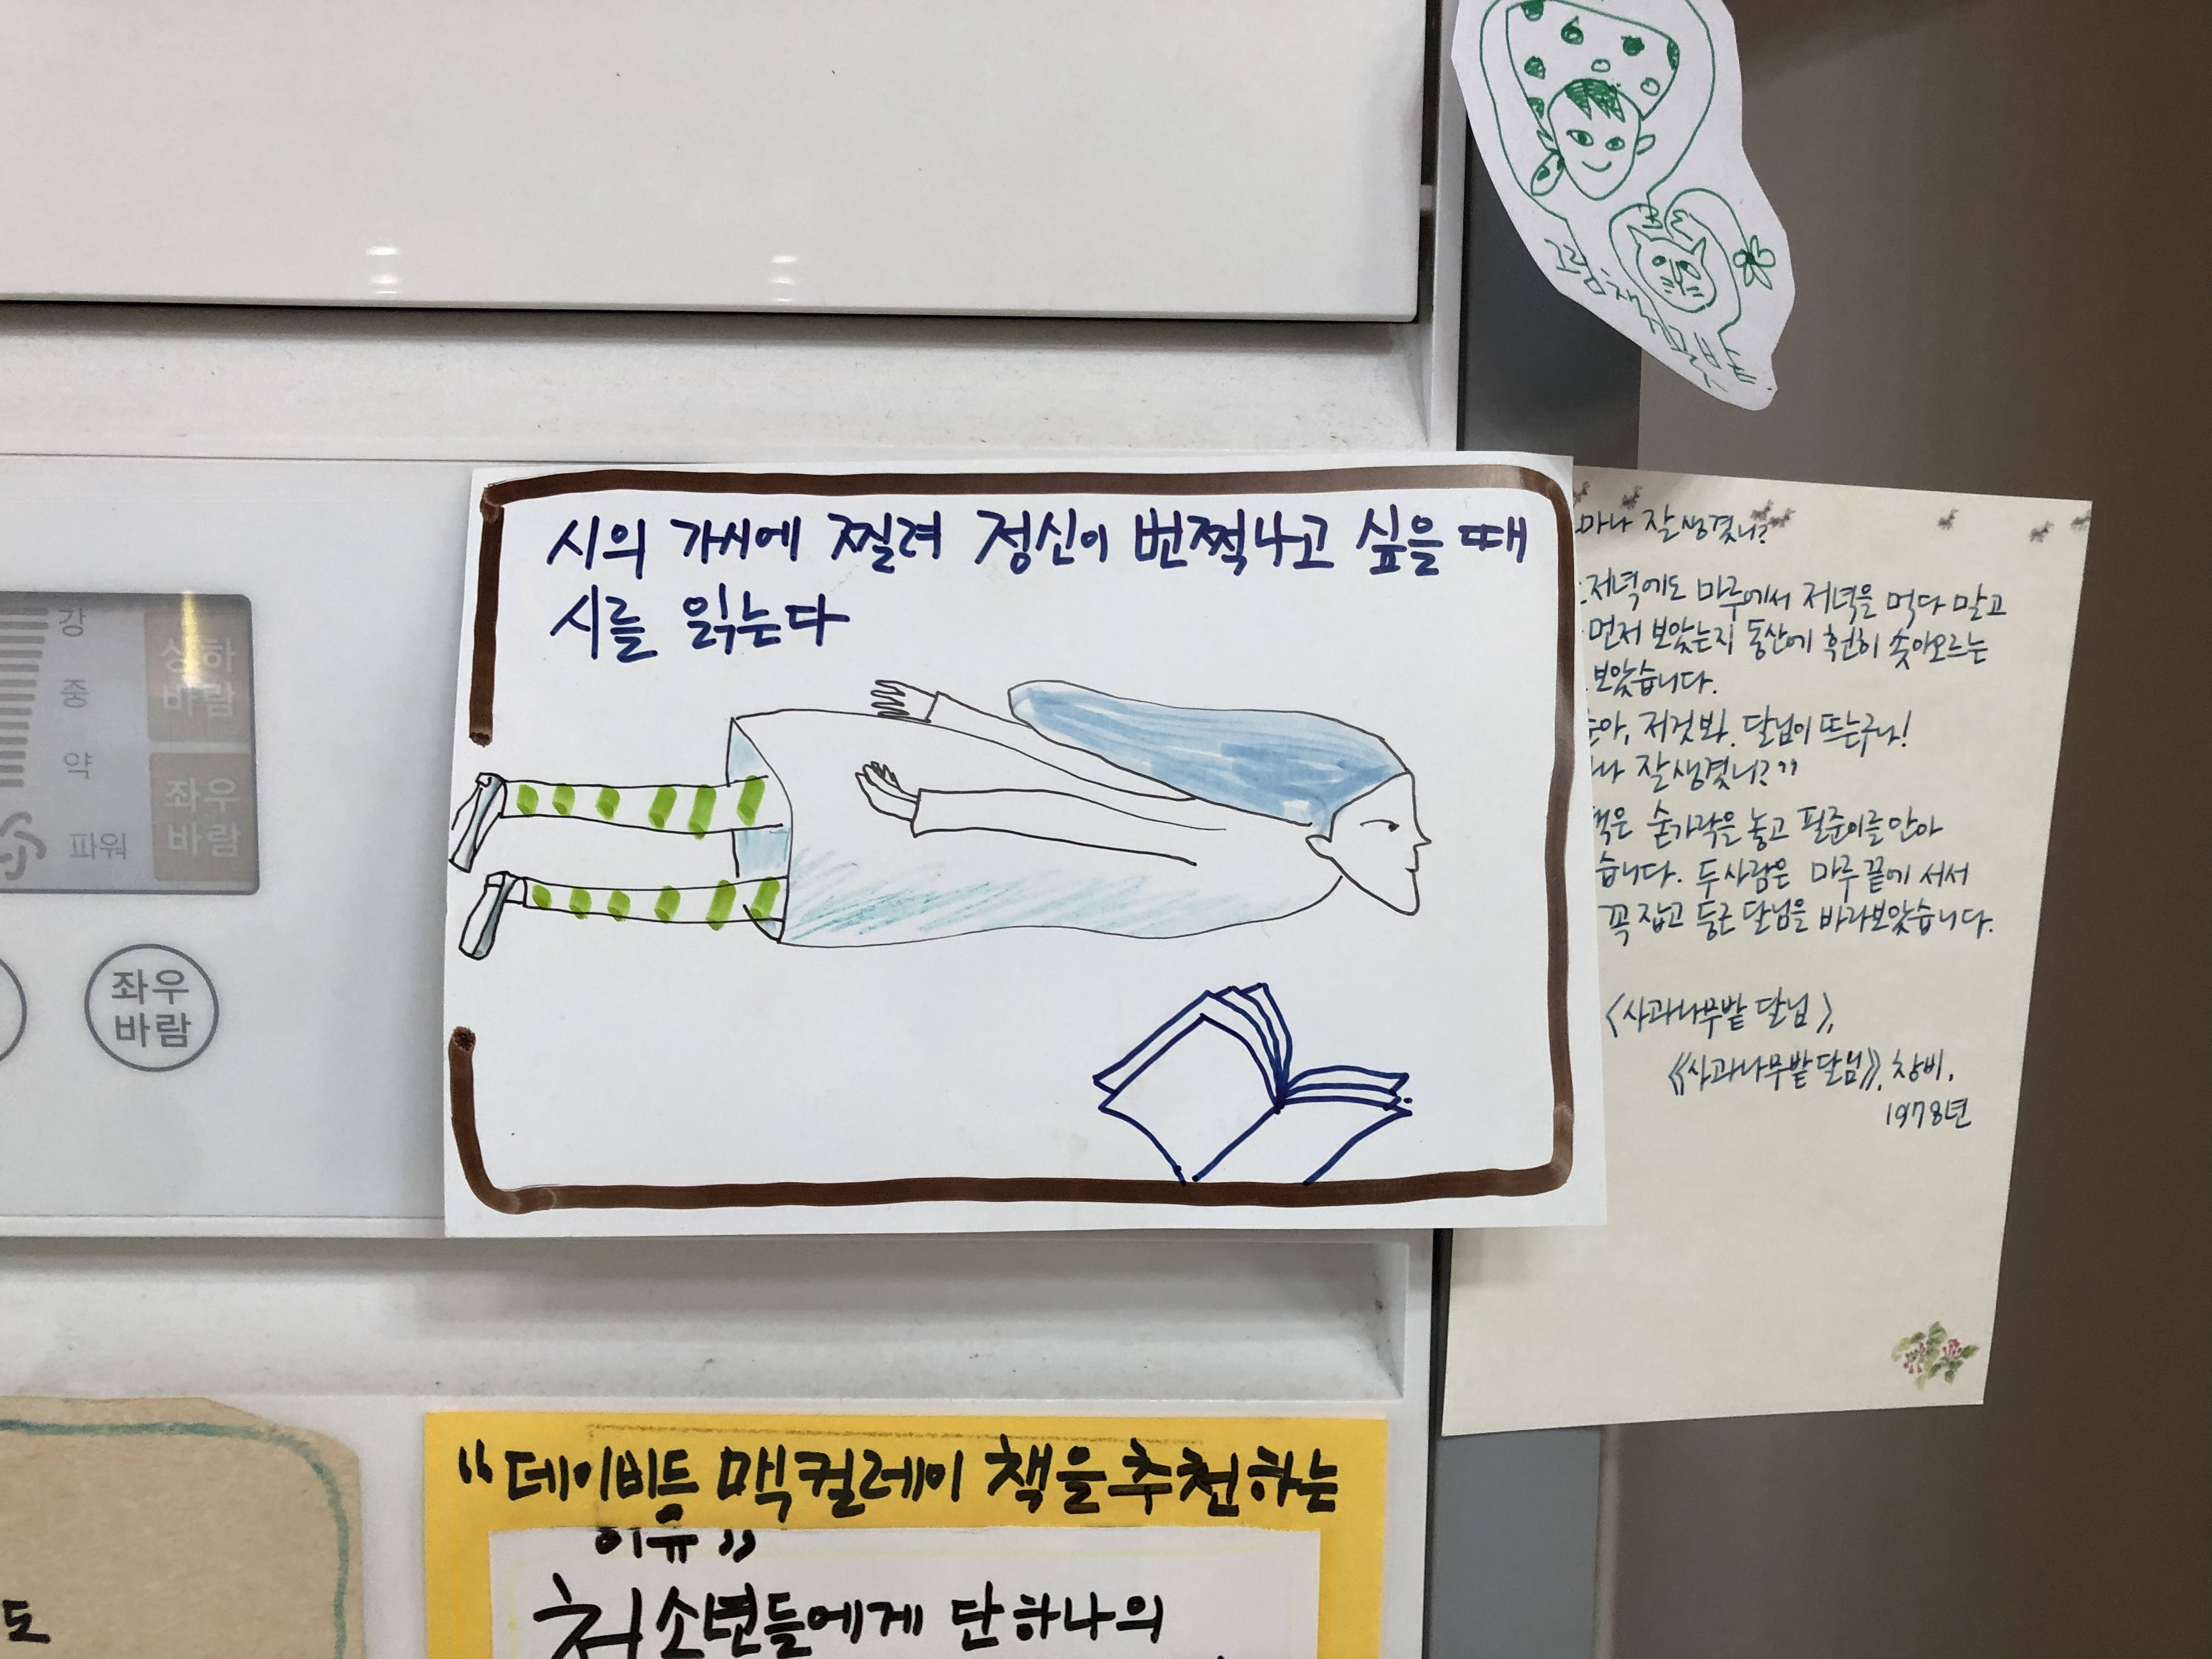 그림책 꽃밭
시의 가시에 찔려 정신이 번쩍나고 싶을 때
시를 읽는다
마나 잘생겼니?
저녁에도 마루에서 저녁을 먹다 말고
먼저 보았는지 동산에 훤히 솟아오르는
보았습니다.
아, 저것봐. 달님이 뜨는구나!
나 잘생겼니?”
은 숟가락을 놓고 필준이를 안아
습니다. 두 사람은 마루 끝에 서서
꼭 잡고 둥근 달님을 바라보았습니다.
〈사과나무밭 달님〉,
《사과나무밭달님》, 창비,
1978년
강
중
약
파워
상하
바람
좌우
바람
좌우
바람
“데이비드 맥컬레이 책을 추천하는
이유”
청소년들에게 단 하나의
도